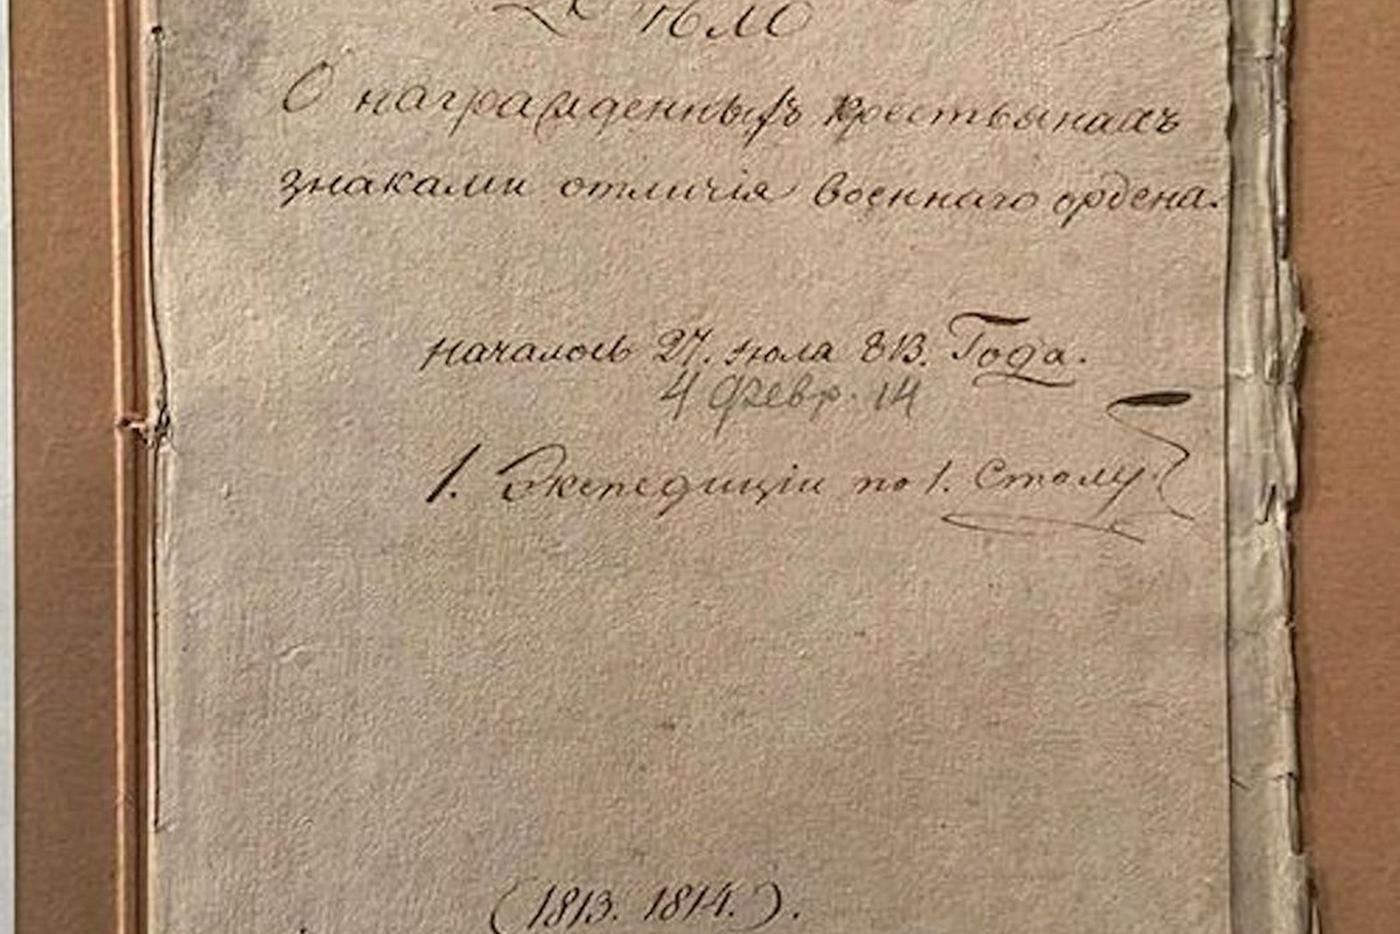 Дѣло
О награжденныхъ крестьянахъ
знаками отличія военнаго ордена.
началось 27. июла 813. Года.
4 февр. 14
1. Экспедиціи по 1. столу.
(1813. 1814.).